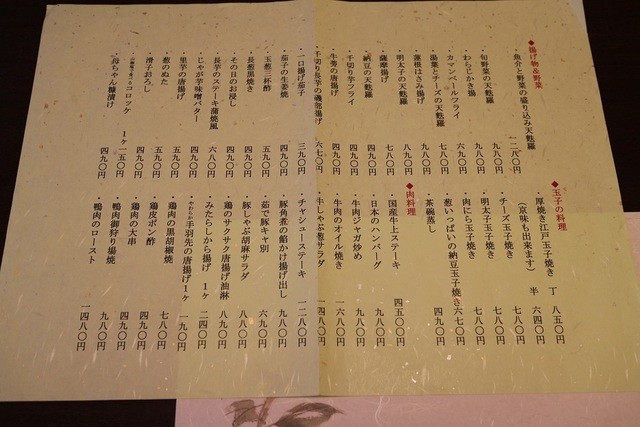 ◆揚げ物&野菜
・魚介と野菜の盛り込み天麩羅 一二八〇円
・旬野菜の天麩羅 九八〇円
・わらじかき揚 七八〇円
・カマンベールフライ 六九〇円
・湯葉とチーズの天麩羅 九八〇円
・蓮根はさみ揚げ 七八〇円
・明太子の天麩羅 八九〇円
・薩摩揚げ 七八〇円
・納豆の天麩羅 四九〇円
・千切り芋フライ 四九〇円
・牛蒡の唐揚げ 四九〇円
・千切り長芋の磯部揚げ 六七〇円
・一口揚げ茄子 三九〇円
・茄子の生姜焼 四九〇円
・玉葱三杯酢 五九〇円
・長葱黒焼き 四九〇円
・その日のお浸し 四九〇円
・長芋のステーキ蒲焼風 六八〇円
・じゃが芋味噌バター 四九〇円
・里芋の唐揚げ 五九〇円
・葱のぬた 五四〇円
・滑子おろし 四九〇円
コロッケ 1ヶ 二五〇円
・母ちゃん糠漬け 四九〇円
◆玉子の料理
・厚焼き江戸玉子焼き 丁 八五〇円
(京味も出来ます) 半 六四〇円
・チーズ玉子焼き 七八〇円
・明太子玉子焼き 七八〇円
・肉にら玉子焼き 七八〇円
・葱いっぱいの納豆玉子焼き 六七〇円
・茶碗蒸し 七八〇円
◆肉料理
・国産牛上ステーキ 四五〇〇円
・日本のハンバーグ 九八〇円
・牛肉ジャガ炒め 九八〇円
・牛肉のオイル焼き 一六八〇円
・牛しゃぶ葱サラダ 一四八〇円
・チャシューステーキ 一二八〇円
・豚角煮の餡かけ揚げ出し 九八〇円
・茹で豚キャ別 六九〇円
・豚しゃぶ胡麻サラダ 八八〇円
・鶏のサクサク唐揚げ油淋 八九〇円
・みたらしから揚げ 1ヶ 二四〇円
・やわらか手羽先の唐揚げ1ヶ 一九〇円
・鶏肉の黒胡椒焼 七八〇円
・鶏皮ポン酢 四九〇円
・鶏肉の大串 四九〇円
・鴨肉御狩り場焼 九八〇円
・鴨肉のロースト 一四八〇円